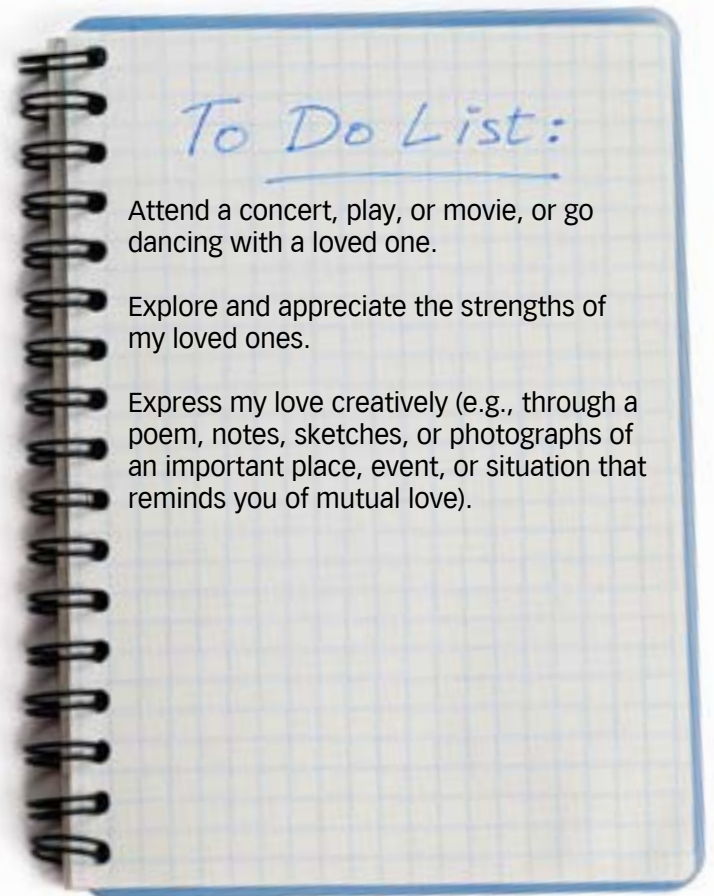 To Do List:
Attend a concert, play, or movie, or go
dancing with a loved one.
Explore and appreciate the strengths of
my loved ones.
Express my love creatively (e.g., through a
poem, notes, sketches, or photographs of
an important place, event, or situation that
reminds you of mutual love).